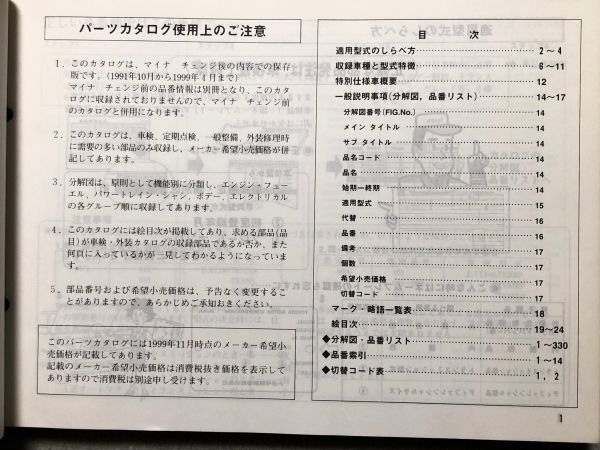 パーツカタログ使用上のご注意
1. このカタログは、マイナ チェンジ後の内容での保存
版です。(1991年10月から1999年4月まで)
マイナ チェンジ前の品番情報は別冊となり、このカタ
ログに収録されておりませんので、マイナ チェンジ前
のカタログと併用になります。
2. このカタログは、車検、定期点検、一般整備、外装修理時
に需要の多い部品のみ収録し、メーカー希望小売価格が併
記してあります。
3. 分解図は、原則として機能別に分類し、エンジン・フュー
エル、パワートレイン・シャシ、ボデー、エレクトリカル
の各グループ順に収録してあります。
4. このカタログには絵目次が掲載してあり、求める部品(品
目)が車検・外装カタログの収録部品であるか否か、また
何頁に入っているかが一見してわかるようになっていま
す。
5. 部品番号および希望小売価格は、予告なく変更するこ
とがありますので、あらかじめご承知おきください。
このパーツカタログには1999年11月時点のメーカー希望小
売価格が記載してあります。
記載のメーカー希望小売価格は消費税抜き価格を表示して
ありますので消費税は別途申し受けます。
目 次
適用型式のしらべ方 2~4
収録車種と型式特徴 6~11
特別仕様車概要 12
一般説明事項(分解図,品番リスト) 14~17
分解図番号(FIG.No.) 14
メイン タイトル 14
サブ タイトル 14
品名コード 14
品名 14
始期-終期 14
適用型式 15
代替 16
品番 16
備考 17
個数 17
希望小売価格 17
切替コード 17
マーク・略語一覧表 18
絵目次 19~24
◆分解図・品番リスト 1~330
◆品番索引 1~14
◆切替コード表 1,2
1